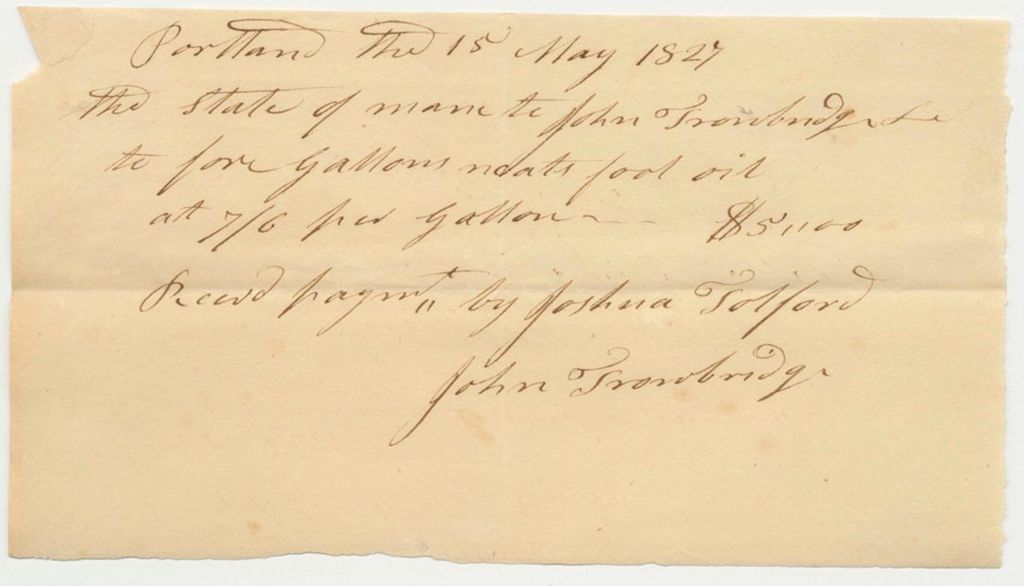 Portland the 15 May 1827
the State of mane to John Trowbridge Dr
to fore Gallons neats foot oil
at 7/6 per Gallon — $5,,00
Recevd paymt,, by Joshua Tolford
John Trowbridge